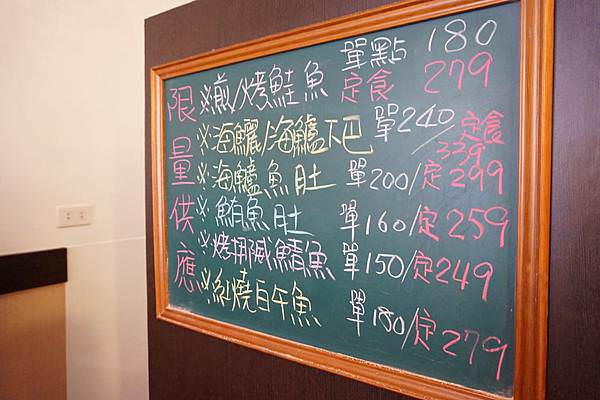 限量供應
※煎/烤鮭魚 單點 180
定食 279
※海鱺/海鱸下巴 單240/定食339
※海鱸魚肚 單200/定299
※鮪魚肚 單160/定259
※烤挪威鯖魚 單150/定249
※紅燒白午魚 單180/定279